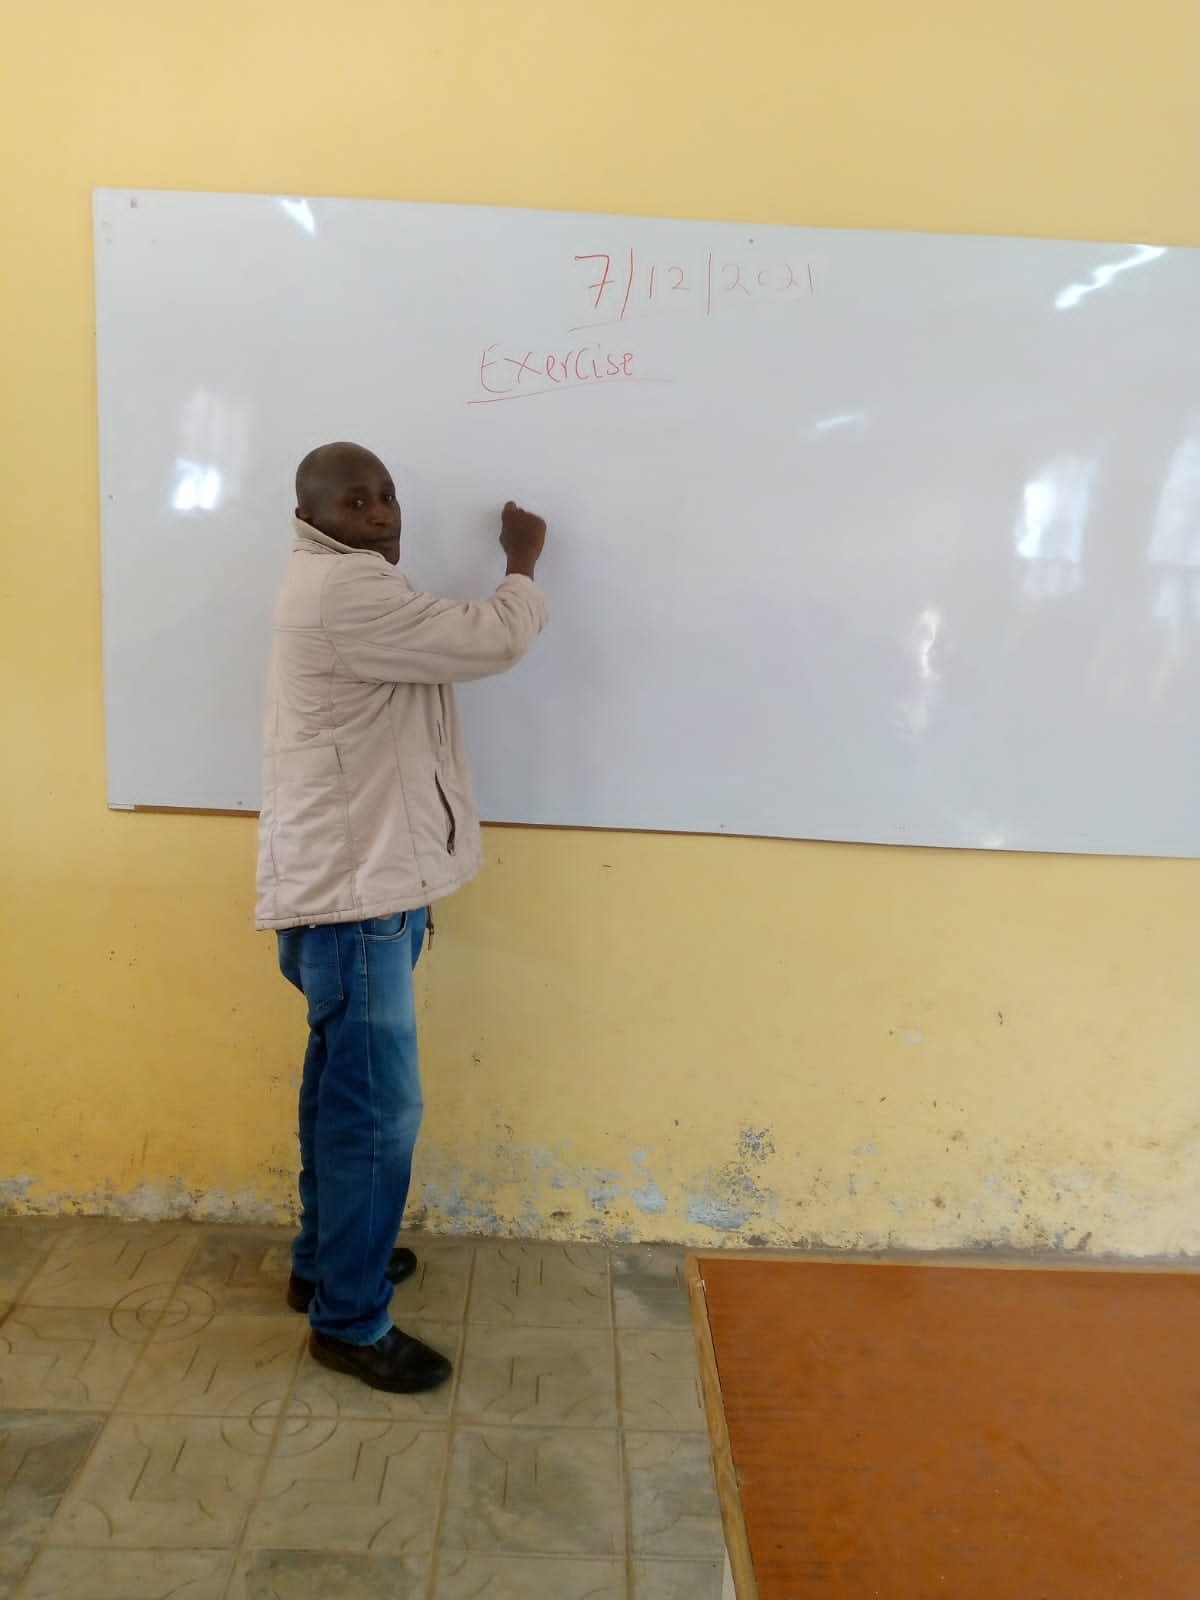 7/12/2021
Exercise